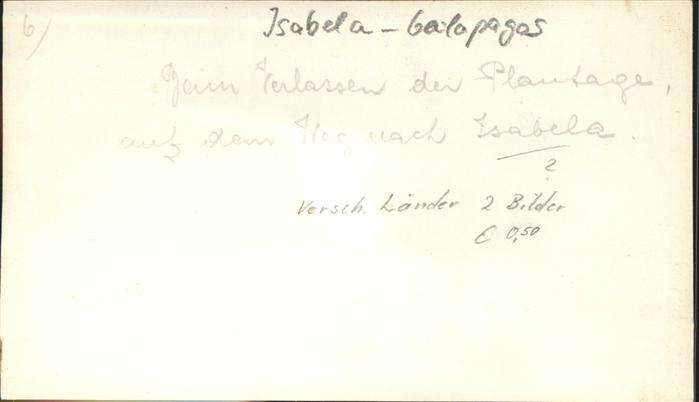 6)
Isabela - Galapagos
Beim Verlassen der Plantage,
auf dem Weg nach Isabela.
?
Versch. Länder 2 Bilder
€ 0,50